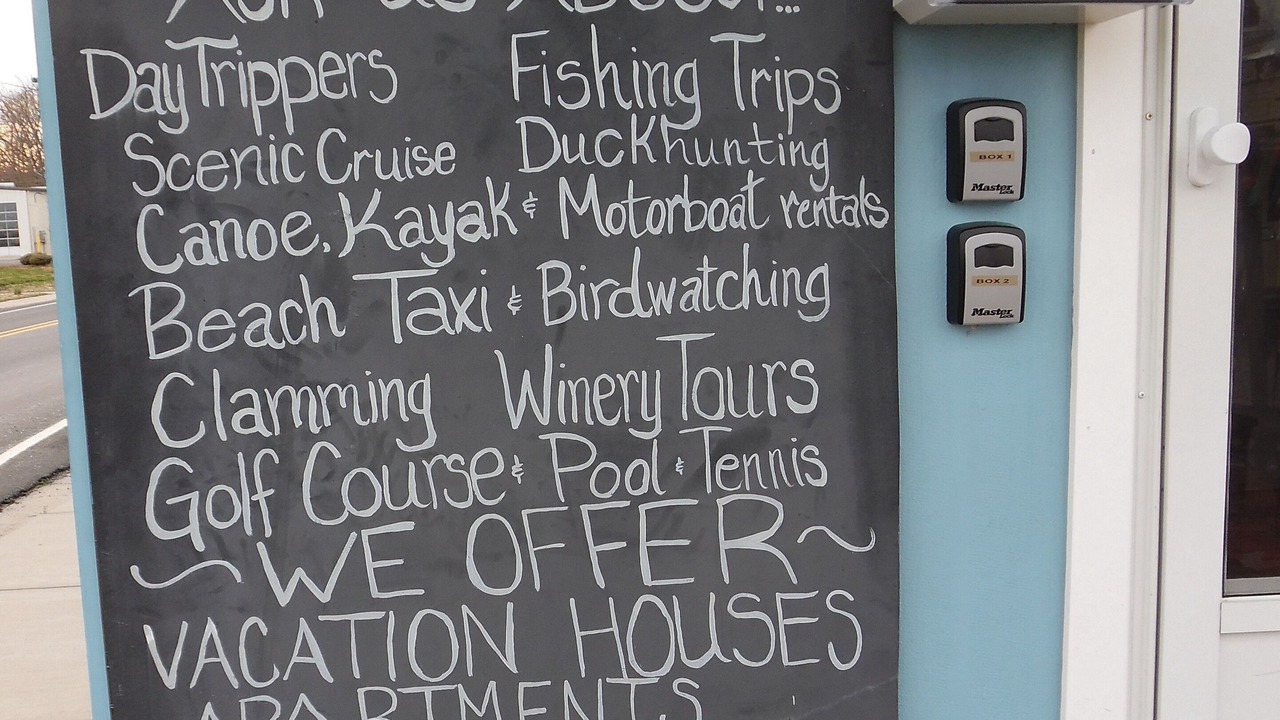 ASK US ABOUT...
DayTrippers Fishing Trips
Scenic Cruise Duckhunting
Canoe, Kayak & Motorboat rentals
Beach Taxi & Birdwatching
Clamming Winery Tours
Golf Course & Pool & Tennis
~ WE OFFER ~
VACATION HOUSES
APARTMENTS
BOX 1
Master
Lock
BOX 2
Master
Lock